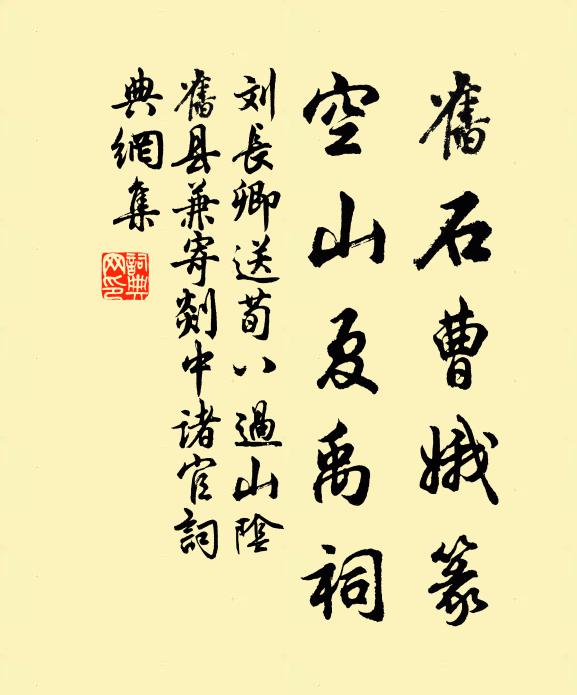 舊石曹娥篆
空山夏禹祠
刘長卿送荀八過山陰
舊县兼寄剡中诸官詞
典網集
詞典网印